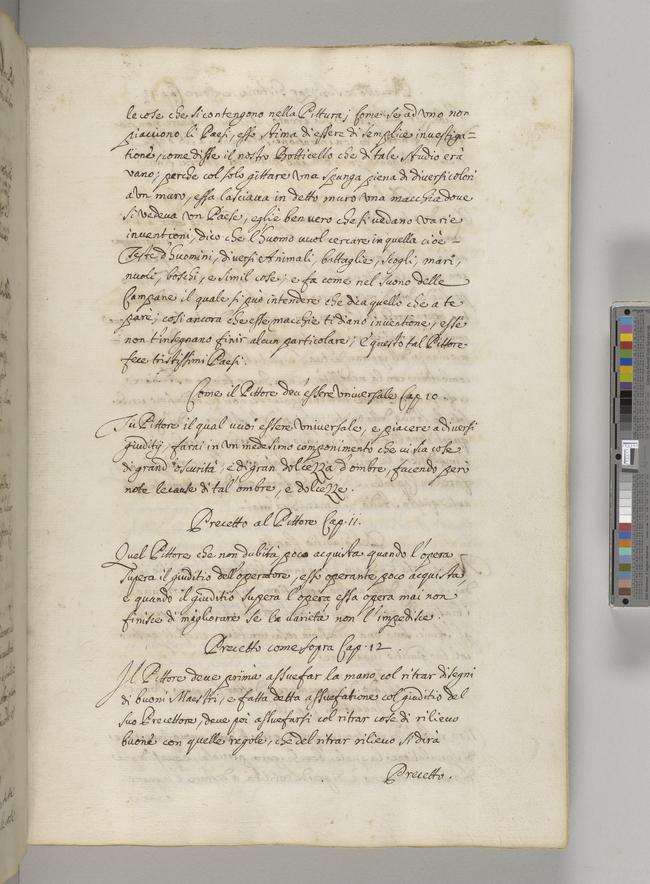 le cose che si contengono nella Pittura; come se ad uno non
piacciono li Paesi, esso stima di essere di semplice investiga-
tione, come disse il nostro Botticello che di tale studio era
vano; perche col solo gittare una spunga piena di diversi colori
a un muro, essa lasciaua in detto muro una macchia dove
si vedeva un Paese, egli è ben vero che si vedano varie
inventioni, dico che l'huomo vuol cercare in quella cioè -
Teste d'huomini, diversi Animali, battaglie, scogli, mari,
nuoli, boschi, e simil cose; e fa come nel suono delle
Campane il quale si può intendere che dica quello che a te
pare; così ancora che esse macchie ti diano inventione, esse
non t'insegnano finir alcun particolare; e questo tal Pittore
fece tristissimi Paesi.
Come il Pittore dev'essere universale Cap. 10.
Tu Pittore il qual vuoi essere universale, e piacere a diversi
giuditij, farai in un medesimo componimento che vi sia cose
di grand'oscurità, e di gran dolcezza d'ombre, facendo però
note le cause di tal ombre, e dolcezze.
Precetto al Pittore Cap. 11.
Quel Pittore che non dubita poco acquista quando l'opera -
supera il giuditio dell'operatore, esso operante poco acquista,
e quando il giuditio supera l'opera essa opera mai non
finisce di migliorare se la varietà non l'impedisce.
Precetto come sopra Cap. 12
Il Pittore deve prima assuefar la mano col ritrar disegni
di buoni Maestri, e fatta detta assuefatione col giuditio del
suo Precettore, deve poi assuefarsi col ritrar cose di rilievo
buone con quelle regole, che del ritrar rilievo si dirà
Precetto.